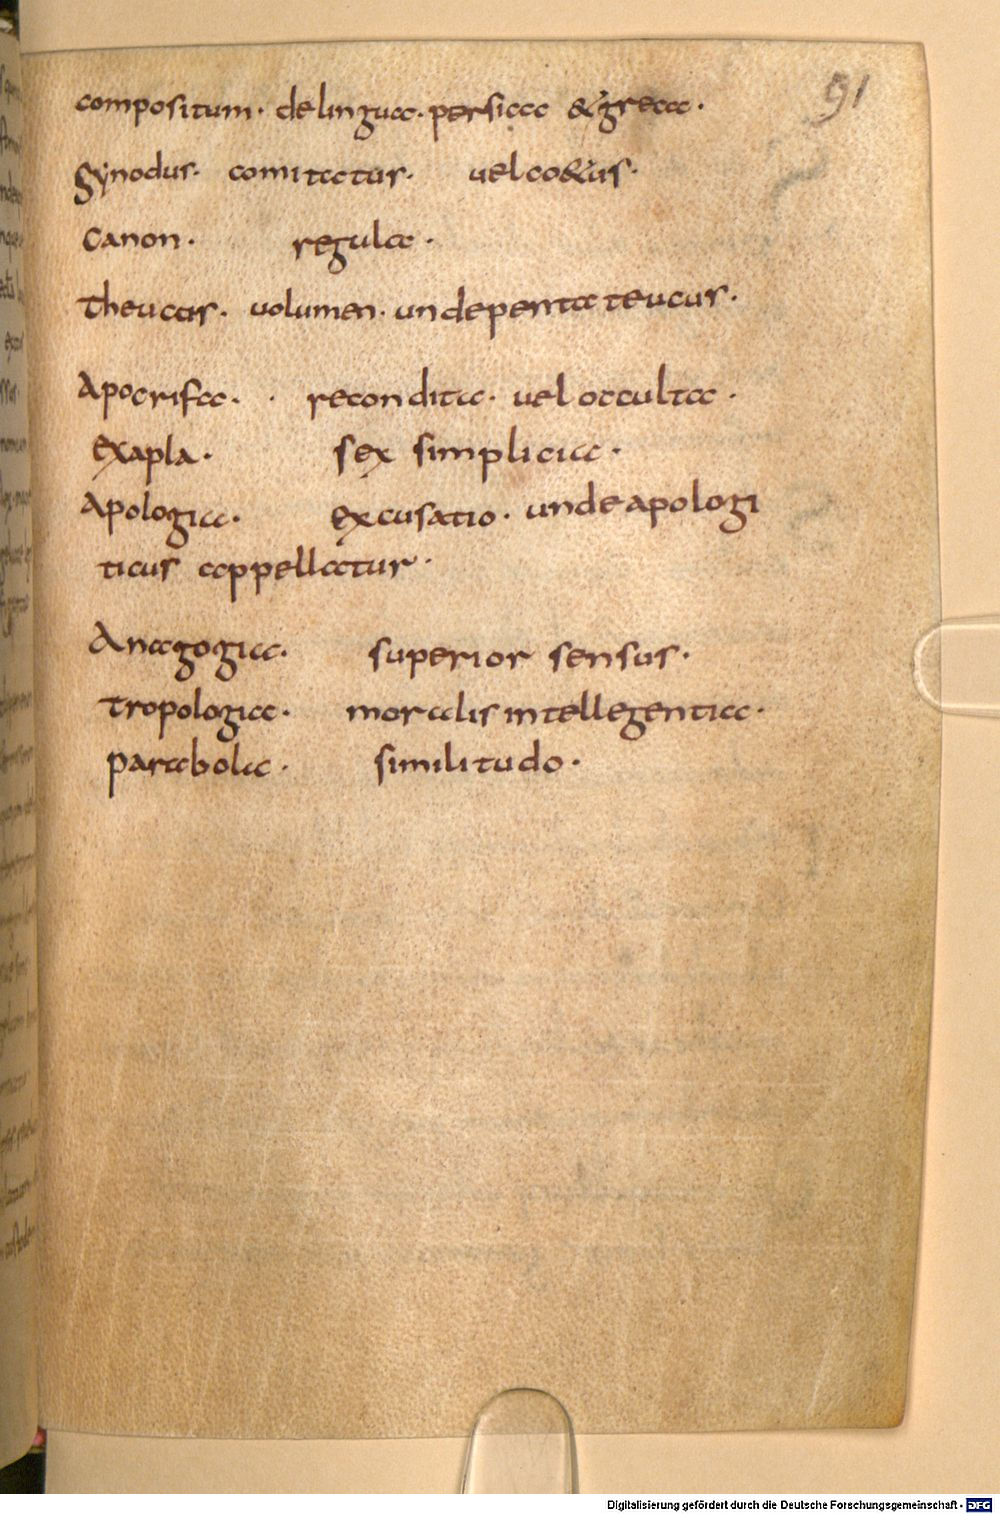 91
compositum· de lingua· persica & greca·
synodus· comitatus· vel co&us·
Canon· regula·
Theucus· volumen· unde pentateucus·
Apocrifa· recondita· vel occulta·
exapla· sex simplicia·
Apologia· excusatio· unde apologi
ticus appellatur·
Anagogia· superior sensus·
Tropologia· moralis intellegentia·
parabola· similitudo·
Digitalisierung gefördert durch die Deutsche Forschungsgemeinschaft · DFG